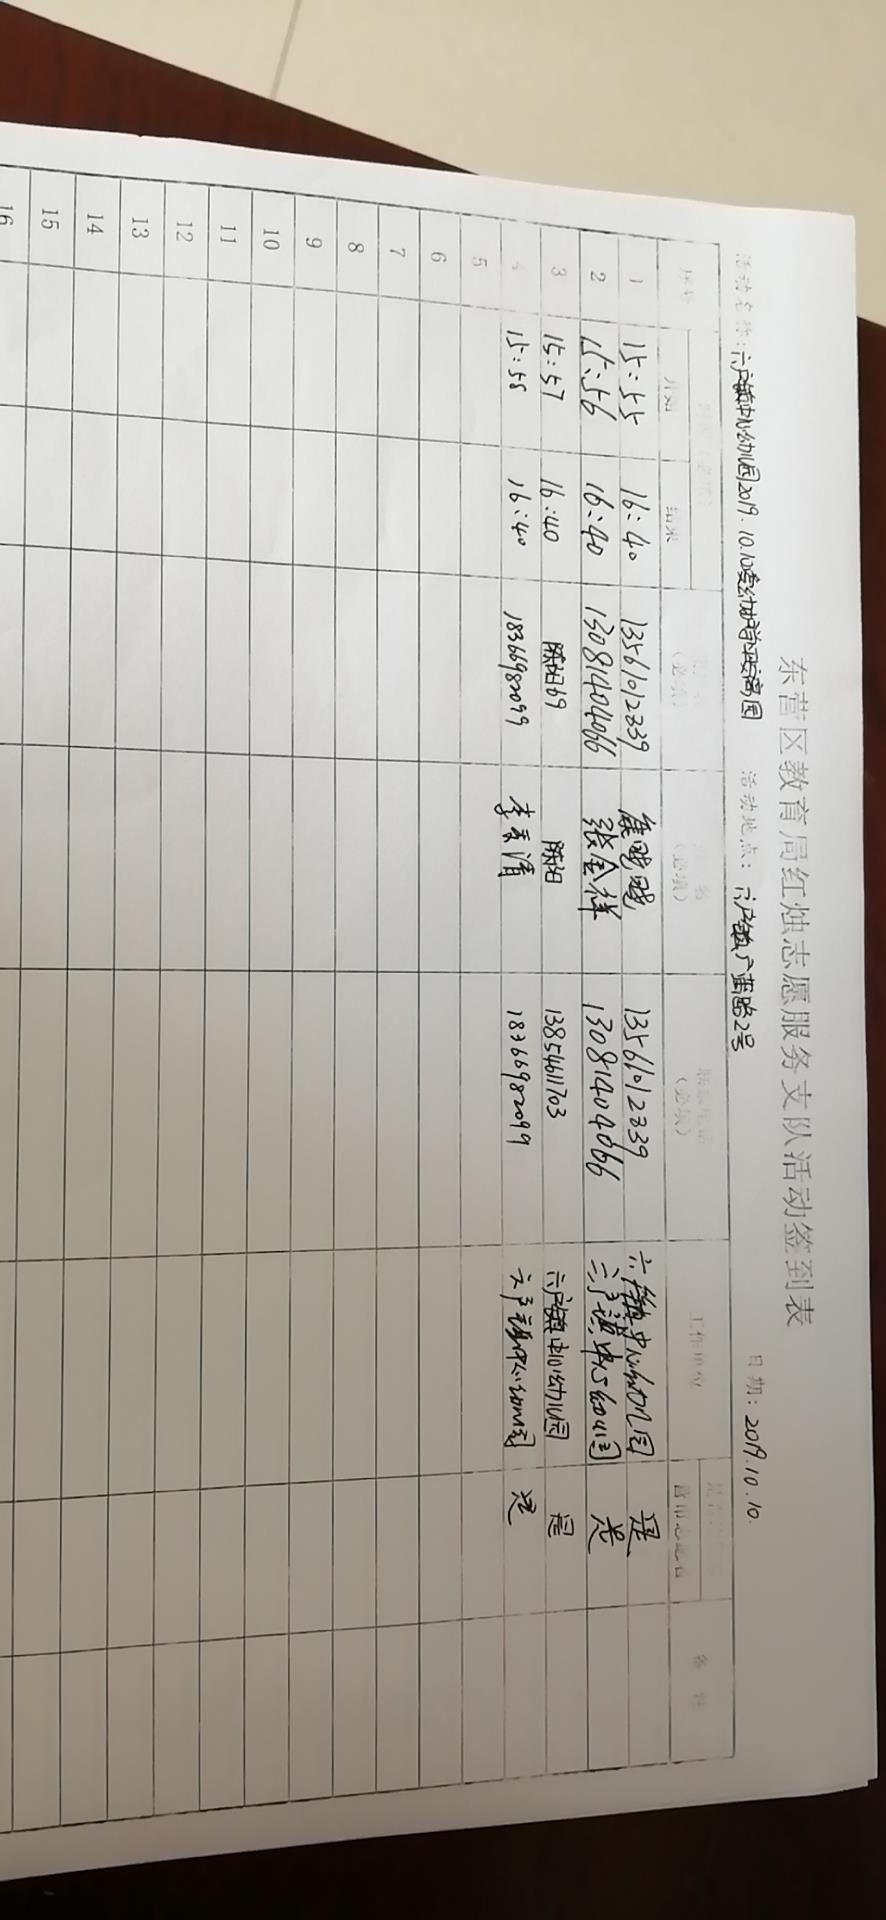 东营区教育局红烛志愿服务支队活动签到表
活动名称：六户镇中心幼儿园2019.10.10 活动地点：六户镇广 路2号 日期：2019.10.10
序号 开始 结束 （必填） 名（必填） 联系电话（必填） 工作单位 备注
1 15:55 16:40 13561012339 13561012339 六户镇中心幼儿园 是
2 15:56 16:40 13081404066 张金祥 13081404066 六户镇中心幼儿园 是
3 15:57 16:40 陈阳69 陈阳 13854611703 六户镇中心幼儿园 是
4 15:58 16:40 18366982099 李 清 18366982099 六户镇中心幼儿园 是
5
6
7
8
9
10
11
12
13
14
15
16